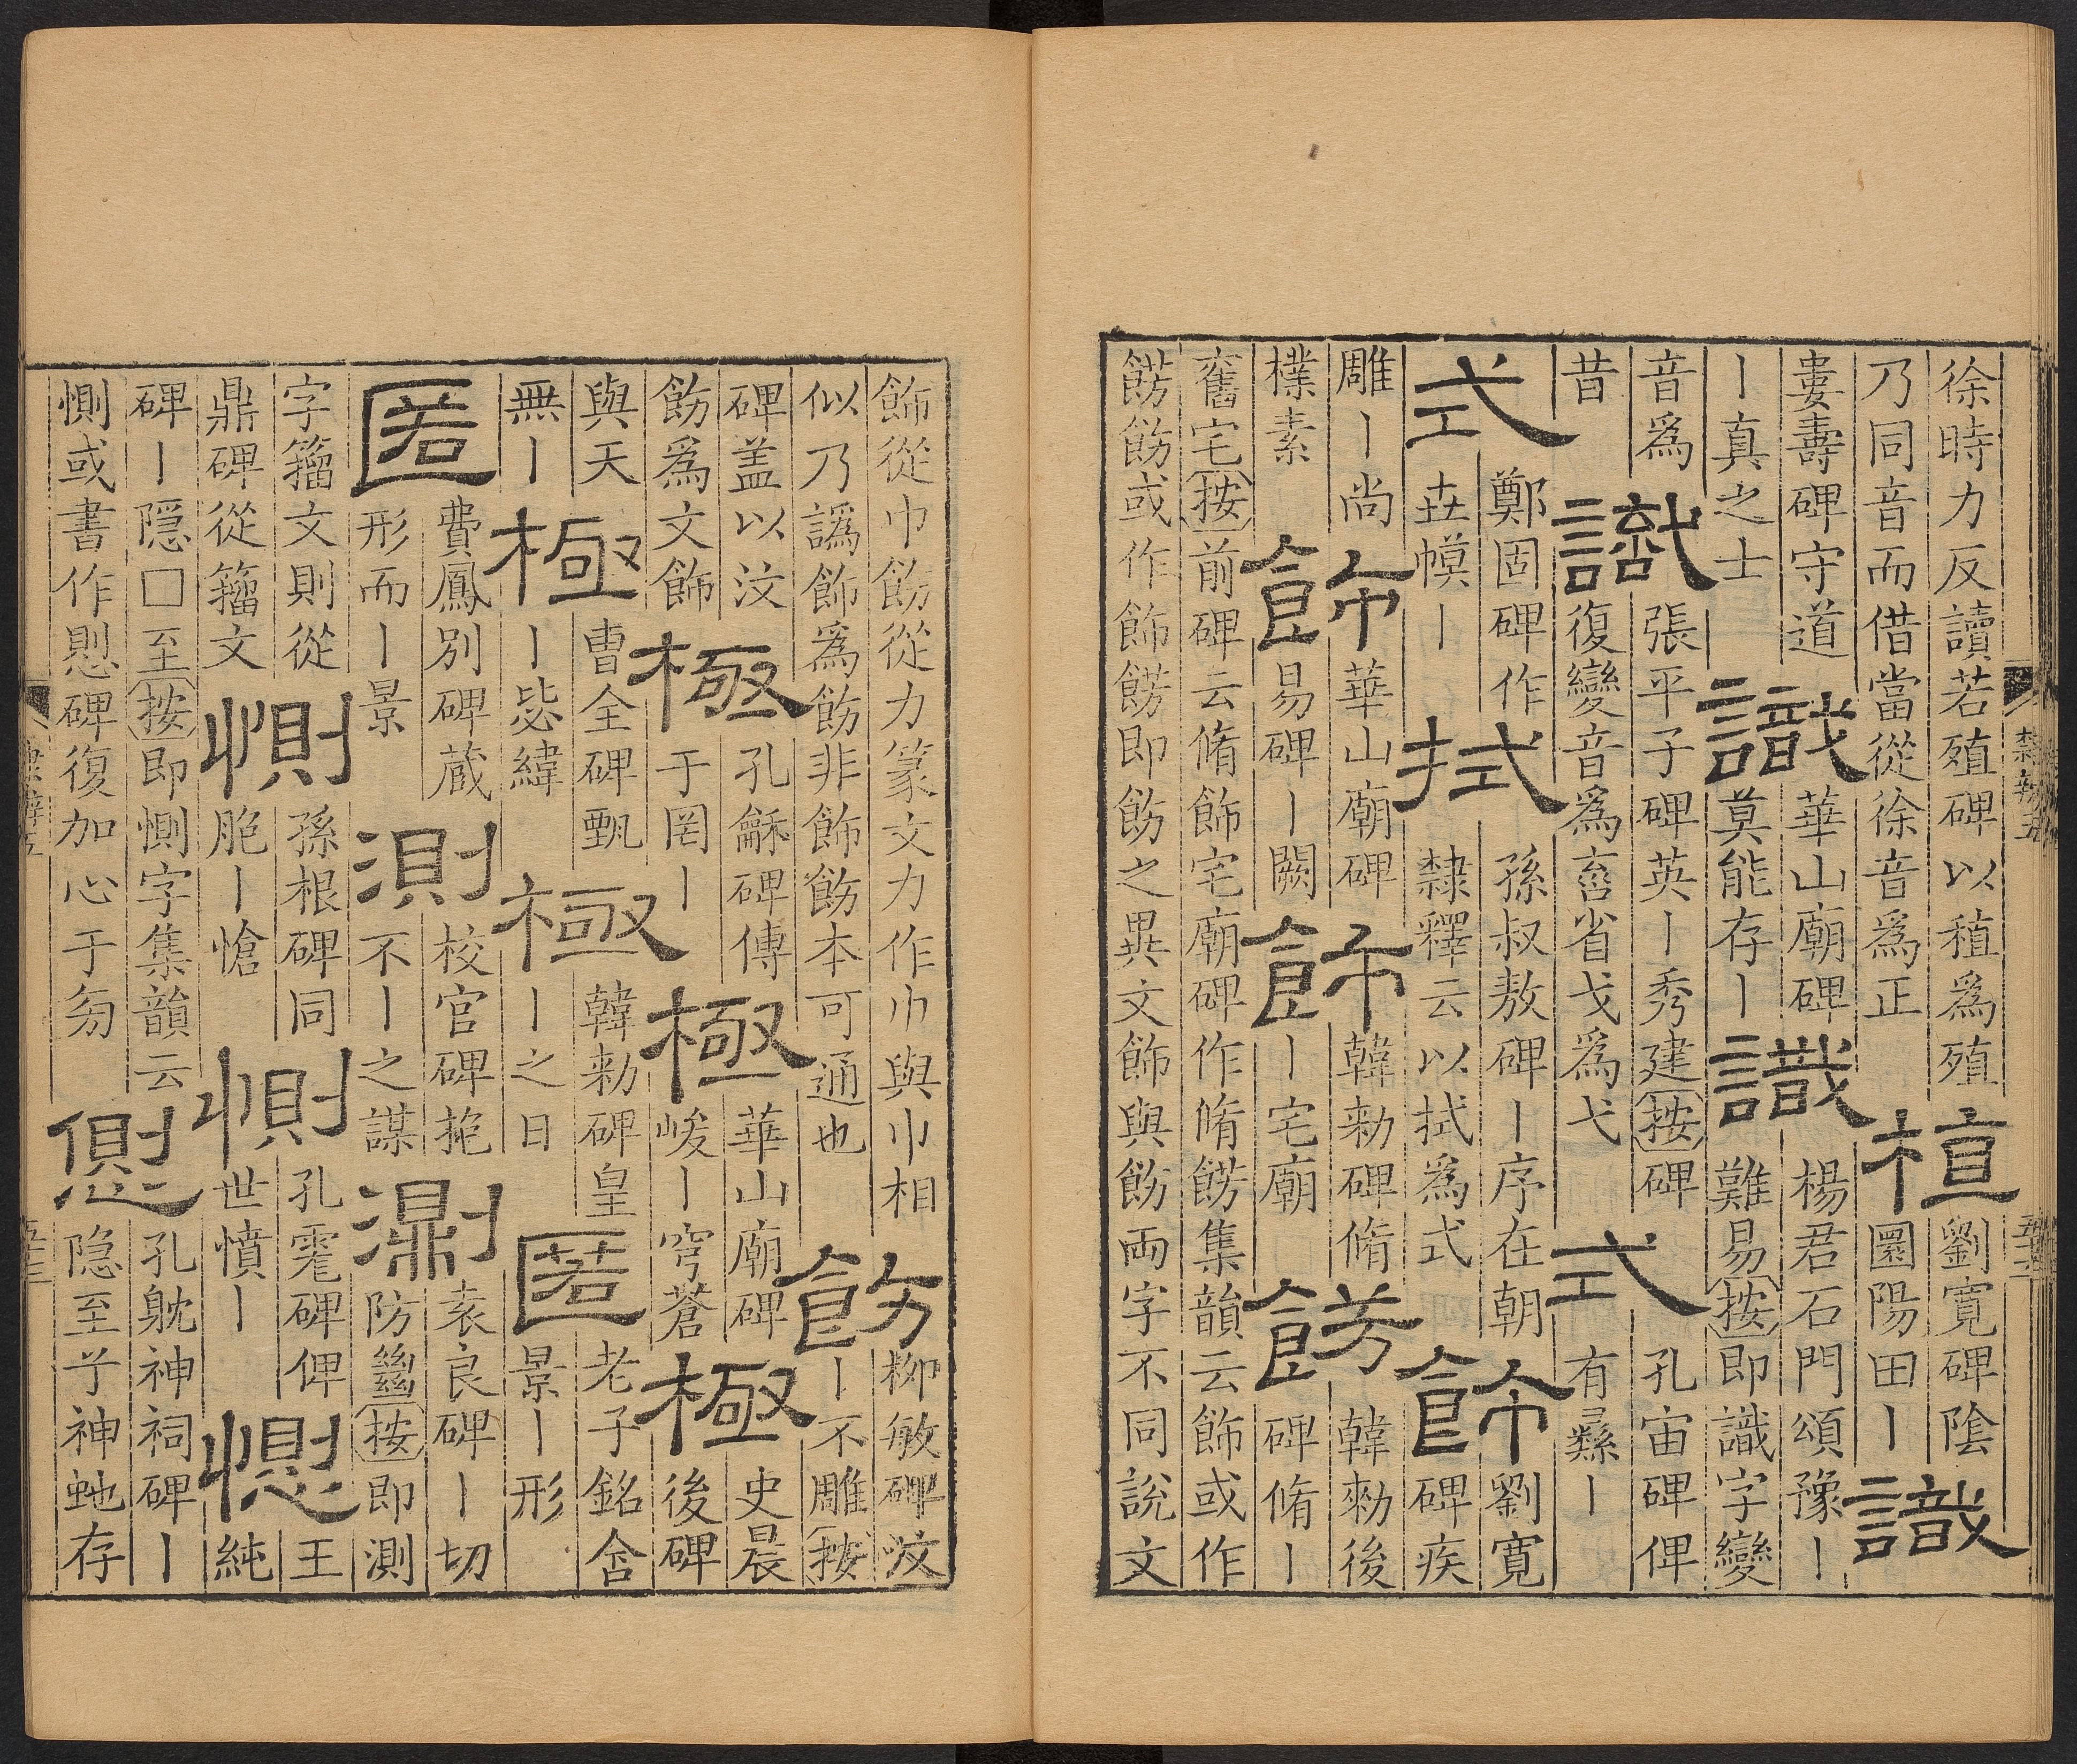 徐時力反讀若殖碑以稙爲殖
乃同音而借當從徐音爲正
植
劉寛碑陰
圜陽田丨
識
婁壽碑守道
丨真之士
識
華山廟碑
莫能存丨
識
楊君石門頌豫丨
難易按即識字變
音爲
昔
識
張平子碑英丨秀建按碑
復變音爲㖣省戈爲弋
式
孔宙碑俾
有彝丨
式
鄭固碑作
丗幙丨
拭
孫叔敖碑丨序在朝
隸釋云以拭爲式
飾
劉寛
碑疾
雕丨尚
樸素
飾
華山廟碑
易碑丨闕
飾
韓勑碑脩
丨宅廟
餝
韓勑後
碑脩丨
舊宅按前碑云脩飾宅廟碑作脩餝集韻云飾或作
餝飭或作飾餝即飭之異文飾與飭兩字不同說文
飾從巾飭從力篆文力作巾與巾相
似乃譌飾爲飭非飾飭本可通也
飭
柳敏碑汶
丨不雕按
碑盖以汶
飭爲文飾
極
孔龢碑傳
于罔丨
極
華山廟碑
峻丨穹蒼
極
史晨
後碑
與天
無丨
極
曹全碑甄
丨毖緯
極
韓勑碑皇
丨之日
匿
老子銘含
景丨形
匿
費鳳別碑蔵
形而丨景
測
校官碑
不丨之謀
測
袁良碑丨切
防按即測
字籀文則從
鼎碑從籀文
惻
孫根碑同
脃丨愴
惻
孔雿碑俾
世憤丨
惻
王
純
碑丨隠□至按即惻字集韻云
惻或書作㥽碑復加心于旁
㥽
孔躭神祠碑丨
隐至兮神虵存
隸辨五